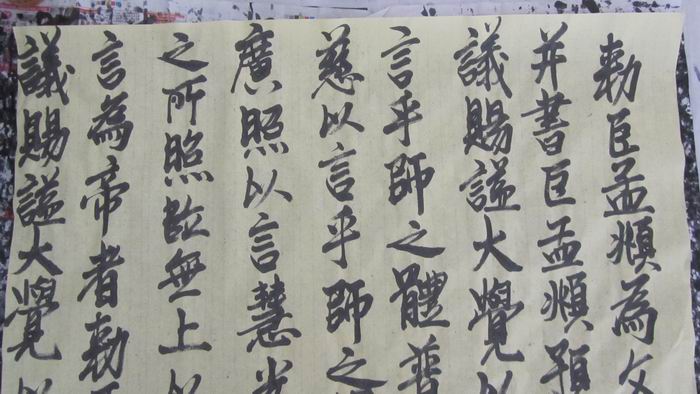 勅臣孟頫為文
并書臣孟頫預
議賜謚大覺以
言乎師之體普
慈以言乎師之
廣照以言慧光
之所照臨無上以
言為帝者勅
議賜謚大覺以